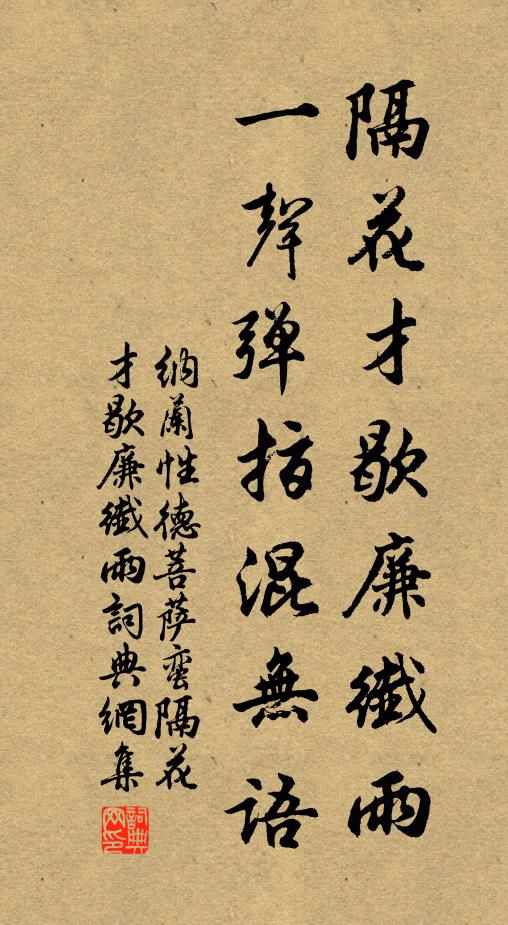 隔花才歇廉纖雨
一聲弹指混無語
納蘭性德菩萨蠻隔花
才歇廉纖雨詞典網集
詞典
网印